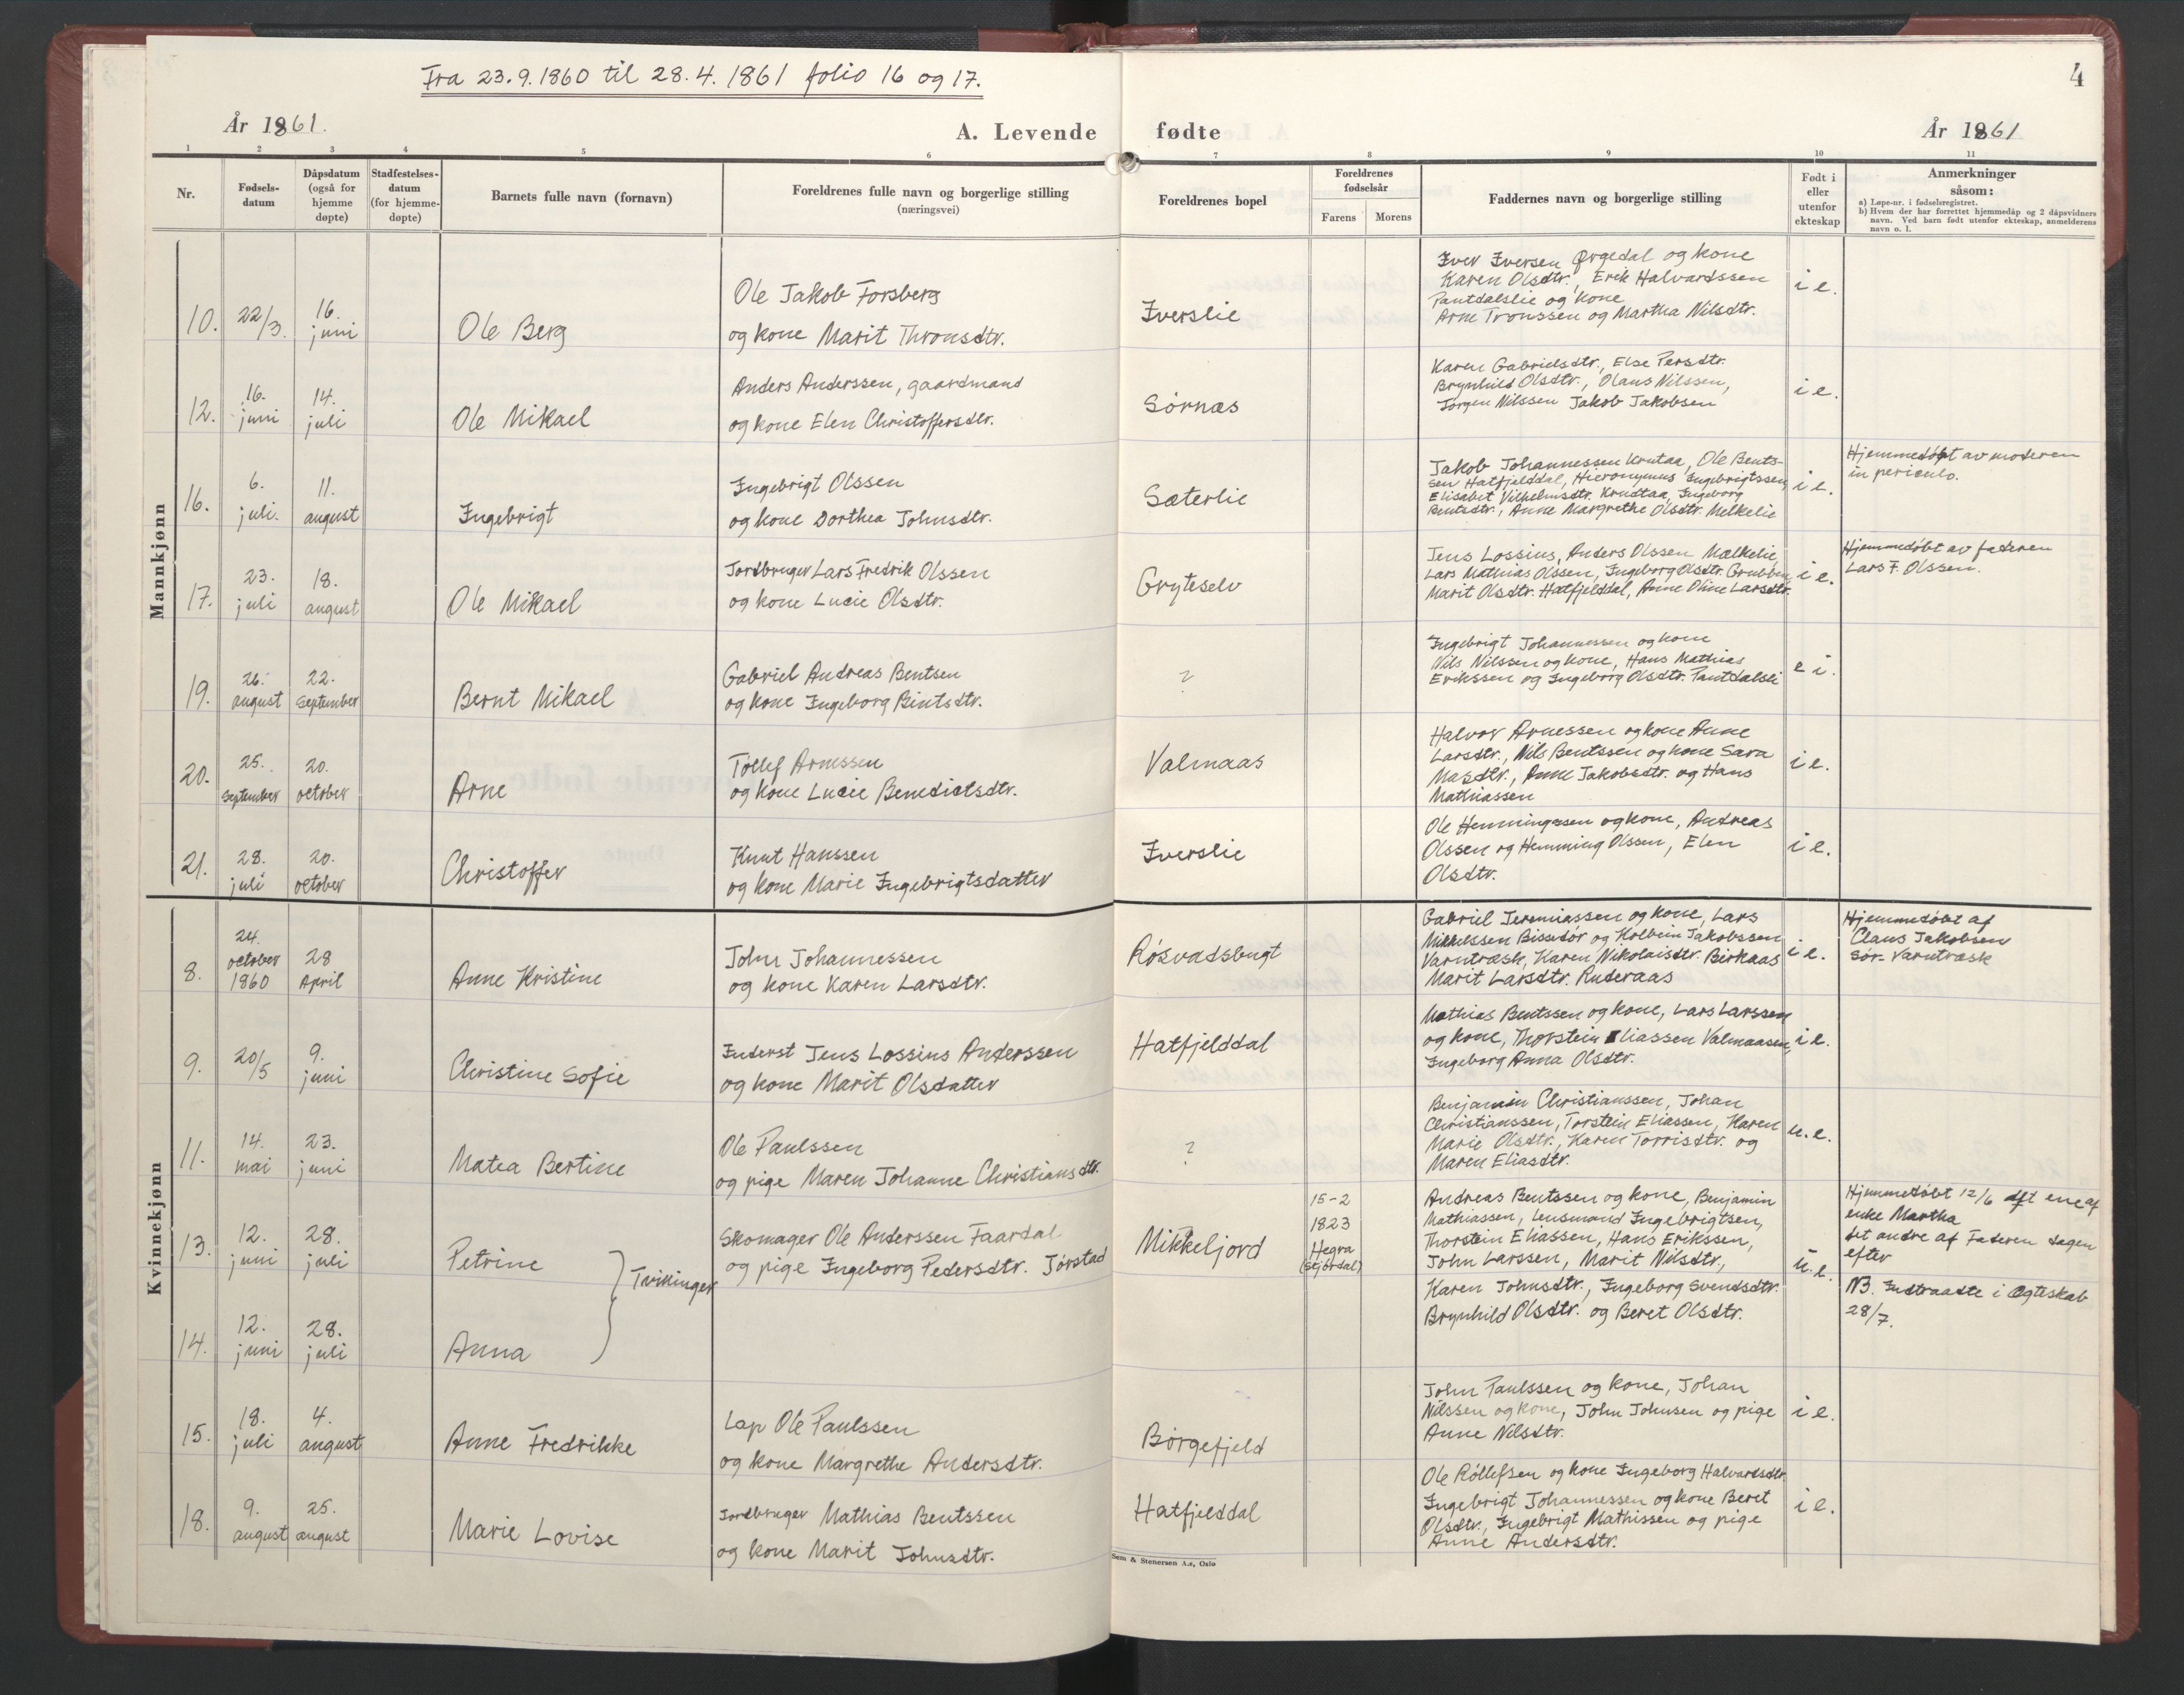 Fra 23.9.1860 til 28.4.1861 folio 16 og 17.
4
År 1861.
A. Levende fødte
År 1861
1 2 3 4 5 6 7 8 9 10 11
Nr.
Fødsels-
datum
Dåpsdatum
(også for
hjemme
døpte)
Stadfestelses-
datum
(for hjemme-
døpte)
Barnets fulle navn (fornavn)
Foreldrenes fulle navn og borgerlige stilling
(næringsvei)
Foreldrenes bopel
Foreldrenes
fødselsår
Farens
Morens
Faddernes navn og borgerlige stilling
Født i
eller
utenfor
ekteskap
Anmerkninger
såsom:
a) Løpe-nr. i fødselsregistret.
b) Hvem der har forrettet hjemmedåp og 2 dåpsvidners
navn. Ved barn født utenfor ekteskap, anmelderens
navn o. l.
Mannkjønn
10.
22/3.
16.
juni
Ole Berg
Ole Jakob Forsberg
og kone Marit Thronsdtr.
Iverslie
Iver Iversen Ørgedal og kone
Karen Olsdtr., Erik Halvardssen
Pantdalslie og kone
Arne Tronssen og Martha Nilsdtr.
i e.
12.
16.
juni
14.
juli
Ole Mikael
Anders Anderssen, gaardmand
og kone Elen Christoffersdtr.
Sørnæs
Karen Gabrielsdtr., Else Persdtr.
Brynhild Olsdtr., Olaus Nilssen,
Jørgen Nilssen Jakob Jakobsen
i e.
16.
6.
juli.
11.
august
Ingebrigt
Ingebrigt Olssen
og kone Dorthea Johnsdtr.
Sæterlie
Jakob Johannessen Krutaa, Ole Bents-
sen Hatfjelddal, Hieronymus Ingebrigtssen,
Elisabet Vilhelmsdtr. Krudtaa, Ingeborg
Bentsdtr., Anne Margrethe Olsdtr. Melkelie
i e.
Hjemmedøbt av moderen
in periculo.
17.
23.
juli
18.
august
Ole Mikael
Jordbruger Lars Fredrik Olssen
og kone Lucie Olsdtr.
Gryteselv
Jens Lossius, Anders Olssen Mælkelie,
Lars Mathias Olssen, Ingeborg Olsdtr. Grubben
Marit Olsdtr. Hatfjelddal, Anne Oline Larsdtr.
i e.
Hjemmedøbt av faderen
Lars F. Olssen.
19.
26.
august
22.
September
Bernt Mikael
Gabriel Andreas Bentsen
og kone Ingeborg Bintsdtr.
?
Ingebrigt Johannessen og kone
Nils Nilssen og kone, Hans Mathias
Erikssen og Ingeborg Olsdtr. Pantdalsli
e i.
20.
25.
September
20.
october
Arne
Tøllef Arnessen
og kone Lucie Benedictsdtr.
Valmaas
Halvor Arnessen og kone Anne
Larsdtr., Nils Bentssen og kone Sara
Masdtr., Anne Jakobsdtr. og Hans
Mathiassen
i e.
21.
28.
juli
20.
october
Christoffer
Knut Hanssen
og kone Marie Ingebrigtsdatter
Iverslie
Ole Henningssen og kone, Andreas
Olssen og Hemming Olssen, Elen
Olsdtr.
i e.
Kvinnekjønn
8.
24.
october
1860
28
April
Anne Kristine
John Johannessen
og kone Karen Larsdtr.
Røsvadsbugt
Gabriel Jeremiassen og kone, Lars
Mikkelssen Bissedør og Holbein Jakobssen
Varntræsk, Karen Nikolaisdtr. Birkaas
Marit Larsdtr. Ruderaas
i e.
Hjemmedøbt af
Claus Jakobsen
Sør-Varntræsk
9.
20/5
9.
juni
Christine Sofie
Inderst Jens Lossius Anderssen
og kone Marit Olsdatter
Hatfjelddal
Mathias Bentssen og kone, Lars Larssen
og kone, Thorstein Eliassen Valmaasen,
Ingeborg Anna Olsdtr.
i e.
11.
14.
mai
23.
juni
Matea Bertine
Ole Paulssen
og pige Maren Johanne Christiansdtr.
?
Benjamin Christianssen, Johan
Christianssen, Torstein Eliassen, Karen
Marie Olsdtr., Karen Torrisdtr. og
Maren Eliasdtr.
u. e.
13.
12.
juni
28.
juli
Petrine
Tvikinger
Skomager Ole Anderssen Faardal
og pige Ingeborg Pedersdtr. Jørstad
Mikkeljord
15-2
1823
Hegra
(Stjørdal)
Andreas Bentssen og kone, Benjamin
Mathiassen, Lensmand Ingebrigtsen,
Thorstein Eliassen, Hans Erikssen,
John Larssen, Marit Nilsdtr.,
Karen Johnsdtr., Ingeborg Svendsdtr.
Brynhild Olsdtr. og Beret Olsdtr.
u. e.
Hjemmedøbt 12/6 det ene af
enke Martha
det andre af Faderen dagen
efter
NB. Indtraadte i Ægteskab
28/7.
14.
12.
juni
28.
juli
Anna
15.
18.
juli
4.
august
Anne Fredrikke
Lap Ole Paulssen
og kone Margrethe Andersdtr.
Børgefjeld
John Paulssen og kone, Johan
Nilssen og kone, John Johnsen og pige
Anne Nilsdtr.
i e.
18.
9.
august
25.
august
Marie Lovise
Jordbruger Mathias Bentssen
og kone Marit Johnsdtr.
Hatfjelddal
Ole Røllefsen og kone Ingeborg Halvardsdtr.
Ingebrigt Johannessen og kone Beret
Olsdtr., Ingebrigt Mathissen og pige
Anne Andersdtr.
i e.
Sem & Stenersen A.s, Oslo